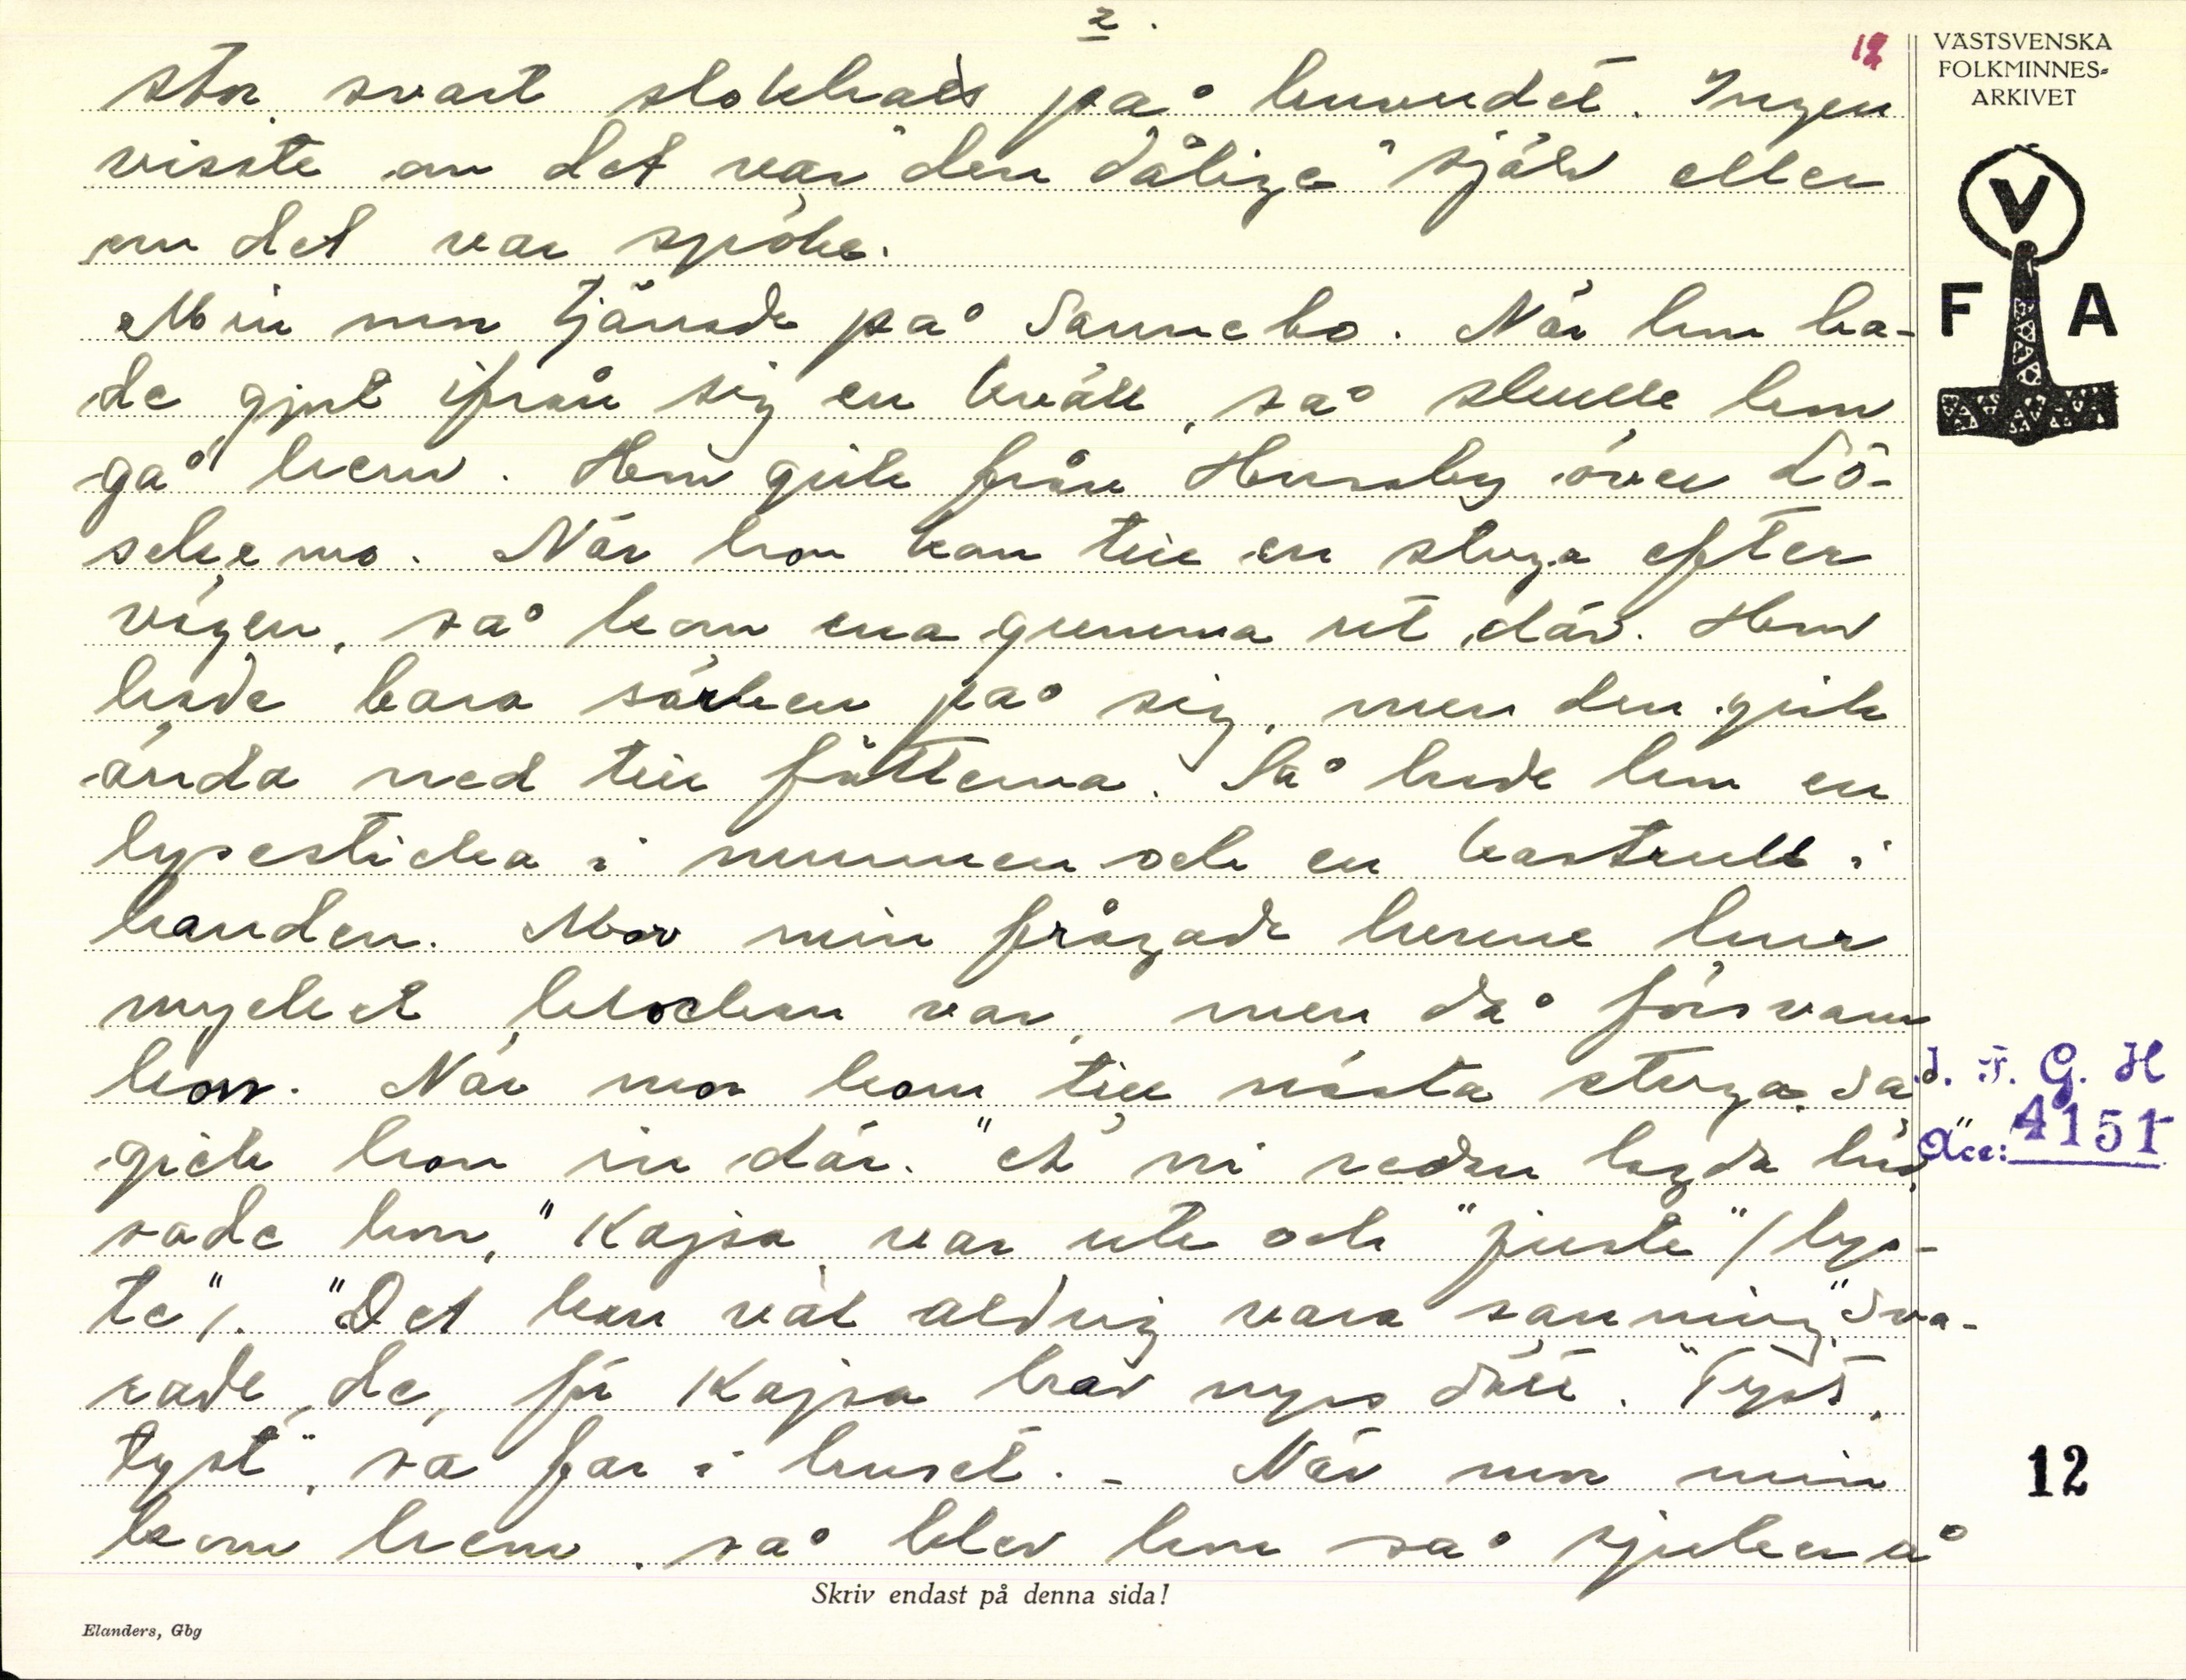 2.
12
VÄSTSVENSKA
FOLKMINNES-
ARKIVET
V
F A
stor svart slokhatt på huvudet. Ingen
visste om det var "den dålige" själv eller
om det var spöke.
Min mor tjänade på Sannebo. När hon ha-
de gjort ifrån sig en kväll, så skulle hon
gå hem. Hon gick från Husaby över Lö-
sekemo. När hon kom till en stuga efter
vägen, så kom ena gumma ut där. Hon
hade bara särken på sig, men den gick
ända ned till fötterna. Så hade hon en
lysesticka i munnen och en kastrull i
handen. Mor min frågade henne hur
mycket klockan var, men då försvann
hon. När mor kom till nästa stuga, så
gick hon in där. "Ä ni redan lagda här,
sade hon, "Kajsa var ute och "juste" / lys-
te"/. "Det kan väl aldrig vara sanning," sva-
rade de, för Kajsa har nyss dött. "Tyst,
tyst", sa far i huset. - När mor min
kom hem, så blev hon så sjuker å
I. F. G. H
Acc: 4151
12
Skriv endast på denna sida!
Elanders, Gbg